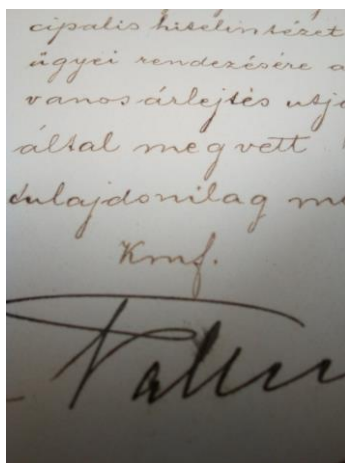 cipalis hitelintézet
ügyei rendezésére a
vanos árlejtés utja
által megvett
tulajdonilag me
Kmf.